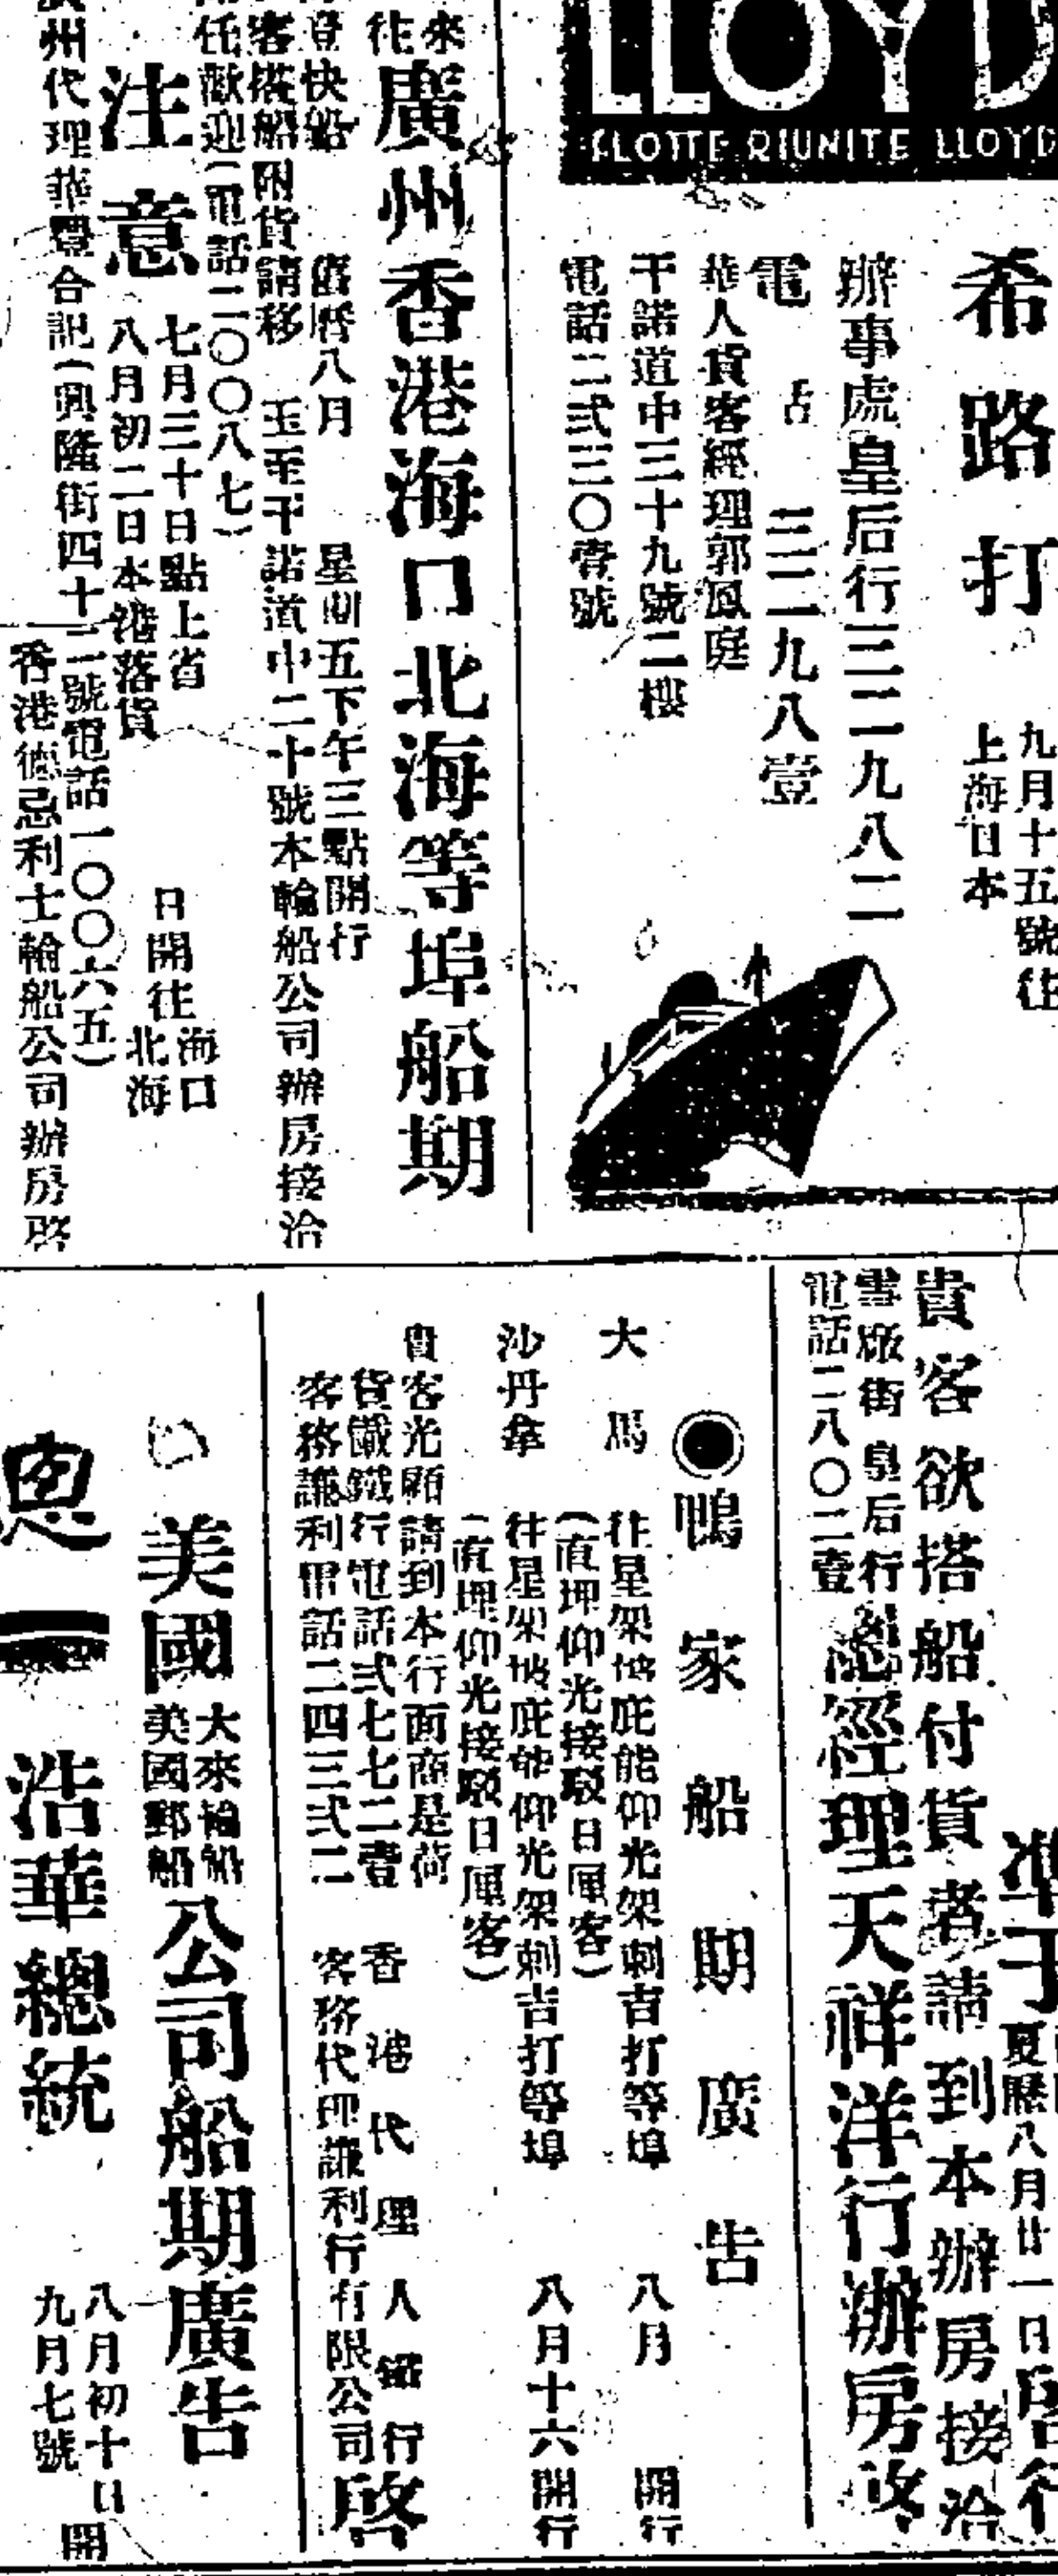 LLOYD
FLOTTE RIUNITE LLOYD
希路打
九月十五號往
上海日本
辦事處皇后行三二九八二
電話 三二九八壹
華人貨客經理郭鳳庭
干諾道中三十九號二樓
電話二弍三〇壹號
來往
廣州香港海口北海等埠船期
登快船 舊曆八月 星期五下午三點開行
客搭船附貨請移 玉至干諾道中二十號本輪船公司辦房接洽
任歡迎(電話二〇〇八七)
注意
七月三十日點上省
八月初二日本港落貨
日開往
海口
北海
州代理華豐合記(興隆街四十二號電話一〇〇六五)
香港德忌利士輪船公司辦房啓
準于
夏曆八月廿一日啓行
貴客欲搭船付貨者請到本辦房接洽
雪廠街皇后行
電話二八〇二壹
總經理天祥洋行辦房啓
●鴨家船期廣告
大馬 往星架坡庇能仰光架剌吉打等埠 八月 開行
(直埋仰光接駁日厘客)
沙丹拿 往星架坡庇能仰光架剌吉打等埠 八月十六開行
(直埋仰光接駁日厘客)
貴客光顧請到本行面商是荷
貨儎鐵行電話弍七七二壹
客務謙利電話二四三弍二
香港代理人鐵行
客務代理謙利行有限公司
啓
美國
大來輪船
美國郵船
公司船期廣告
浩華總統
八月初十日
九月七號
開